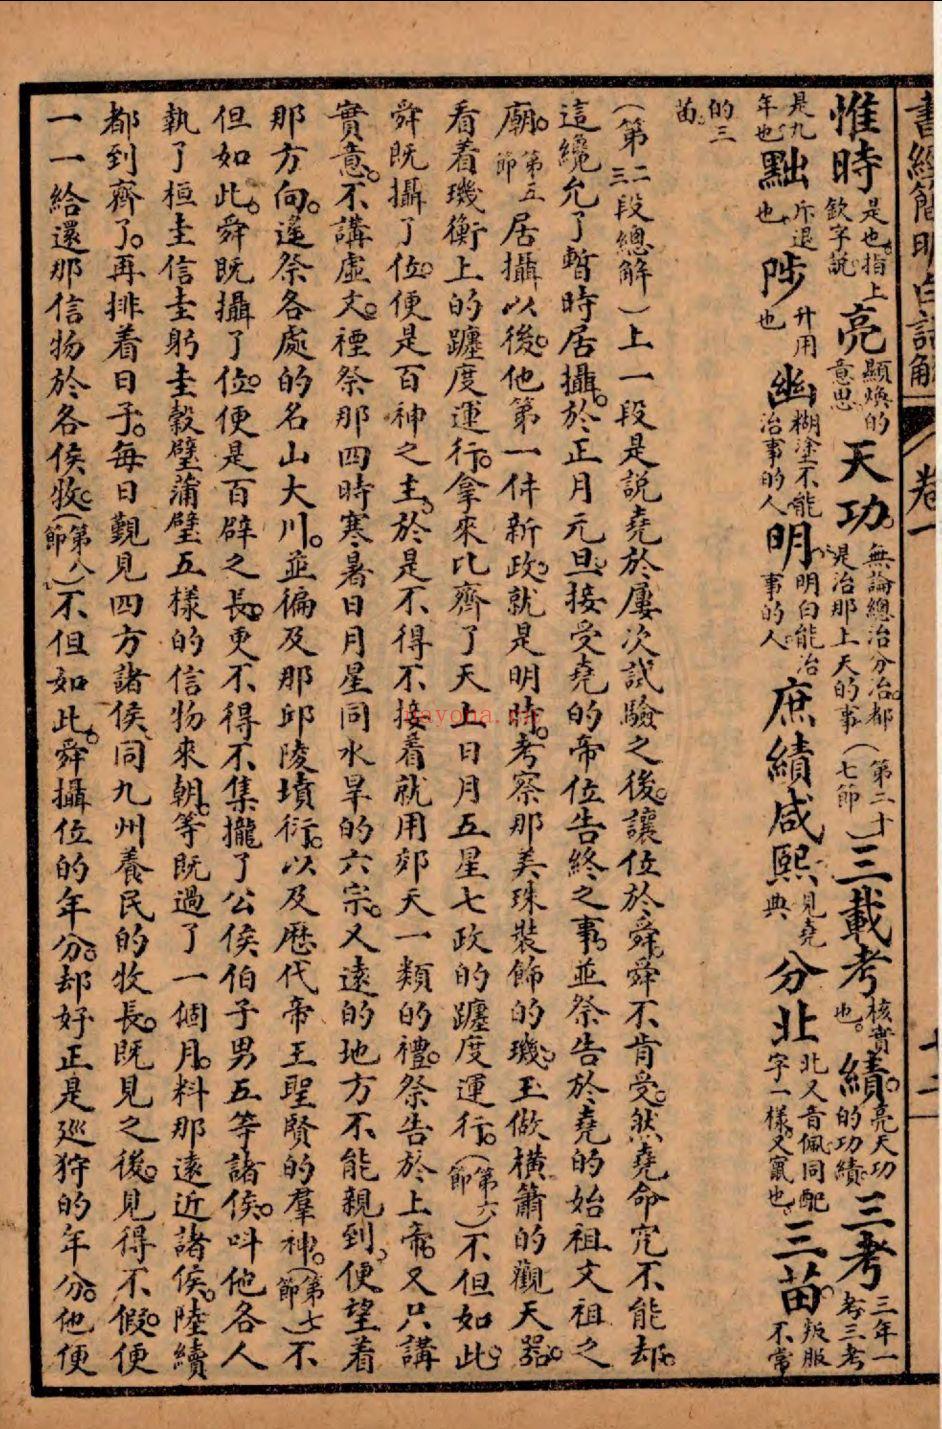 書經簡明白話解 卷一
惟時是也。指上欽字說亮顯煥的意思天功。無論總治分治。都是治那上天的事(第二十七節)三載考核實也。績。亮天功的功績三考三年一考。三考
是九年也黜斥退也陟升用也幽糊塗不能治事的人明。明白能治事的人庶績咸熙見堯典分北北又音佩。同配字一樣。又竄也三苗叛服不常
的三苗。
(第二三段總解)上一段是說堯於屢次試驗之後。讓位於舜。舜不肯受。然堯命究不能却。
這纔允了暫時居攝。於正月元旦。接受堯的帝位告終之事。並祭告於堯的始祖文祖之
廟。第五節居攝以後。他第一件新政。就是明時。考察那美珠裝飾的璣。玉做橫簫的觀天器。
看着璣衡上的躔度運行。拿來比齊了天上日月五星七政的躔度運行。(第六節)不但如此。
舜既攝了位。便是百神之主。於是不得不接着就用郊天一類的禮。祭告於上帝。又只講
實意。不講虛文。禋祭那四時寒暑日月星同水旱的六宗。又遠的地方不能親到。便望着
那方向。遙祭各處的名山大川。並徧及那邱陵墳衍。以及歷代帝王聖賢的羣神。(第七節)不
但如此。舜既攝了位。便是百辟之長。更不得不集攏了公侯伯子男五等諸侯。叫他各人
執了桓圭信圭躬圭穀璧蒲璧五樣的信物來朝。等既過了一個月。料那遠近諸侯。陸續
都到齊了。再排着日子。每日覲見四方諸侯。同九州養民的牧長。既見之後。見得不假。便
一一給還那信物於各侯牧。(第八節)不但如此。舜攝位的年分。却好正是巡狩的年分。他便